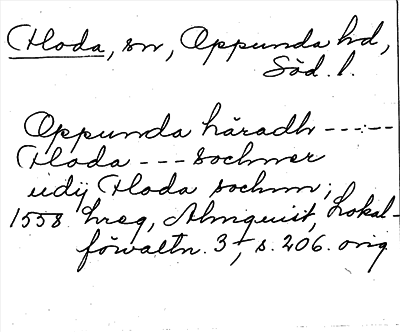 Floda, sn, Oppunda hd,
Söd. l.
Oppunda häradh -----
Floda --- sochner
udij Floda sochnn;
1558 hreg, Almquist, Lokal-
förvaltn. 3, s. 206. orig